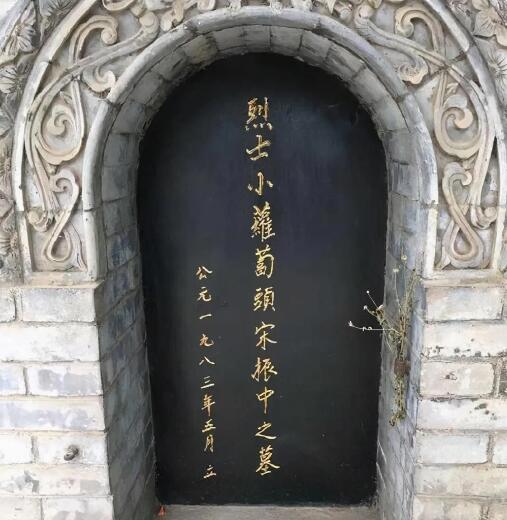 烈士小蘿蔔頭宋振中之墓
公元一九八三年五月立